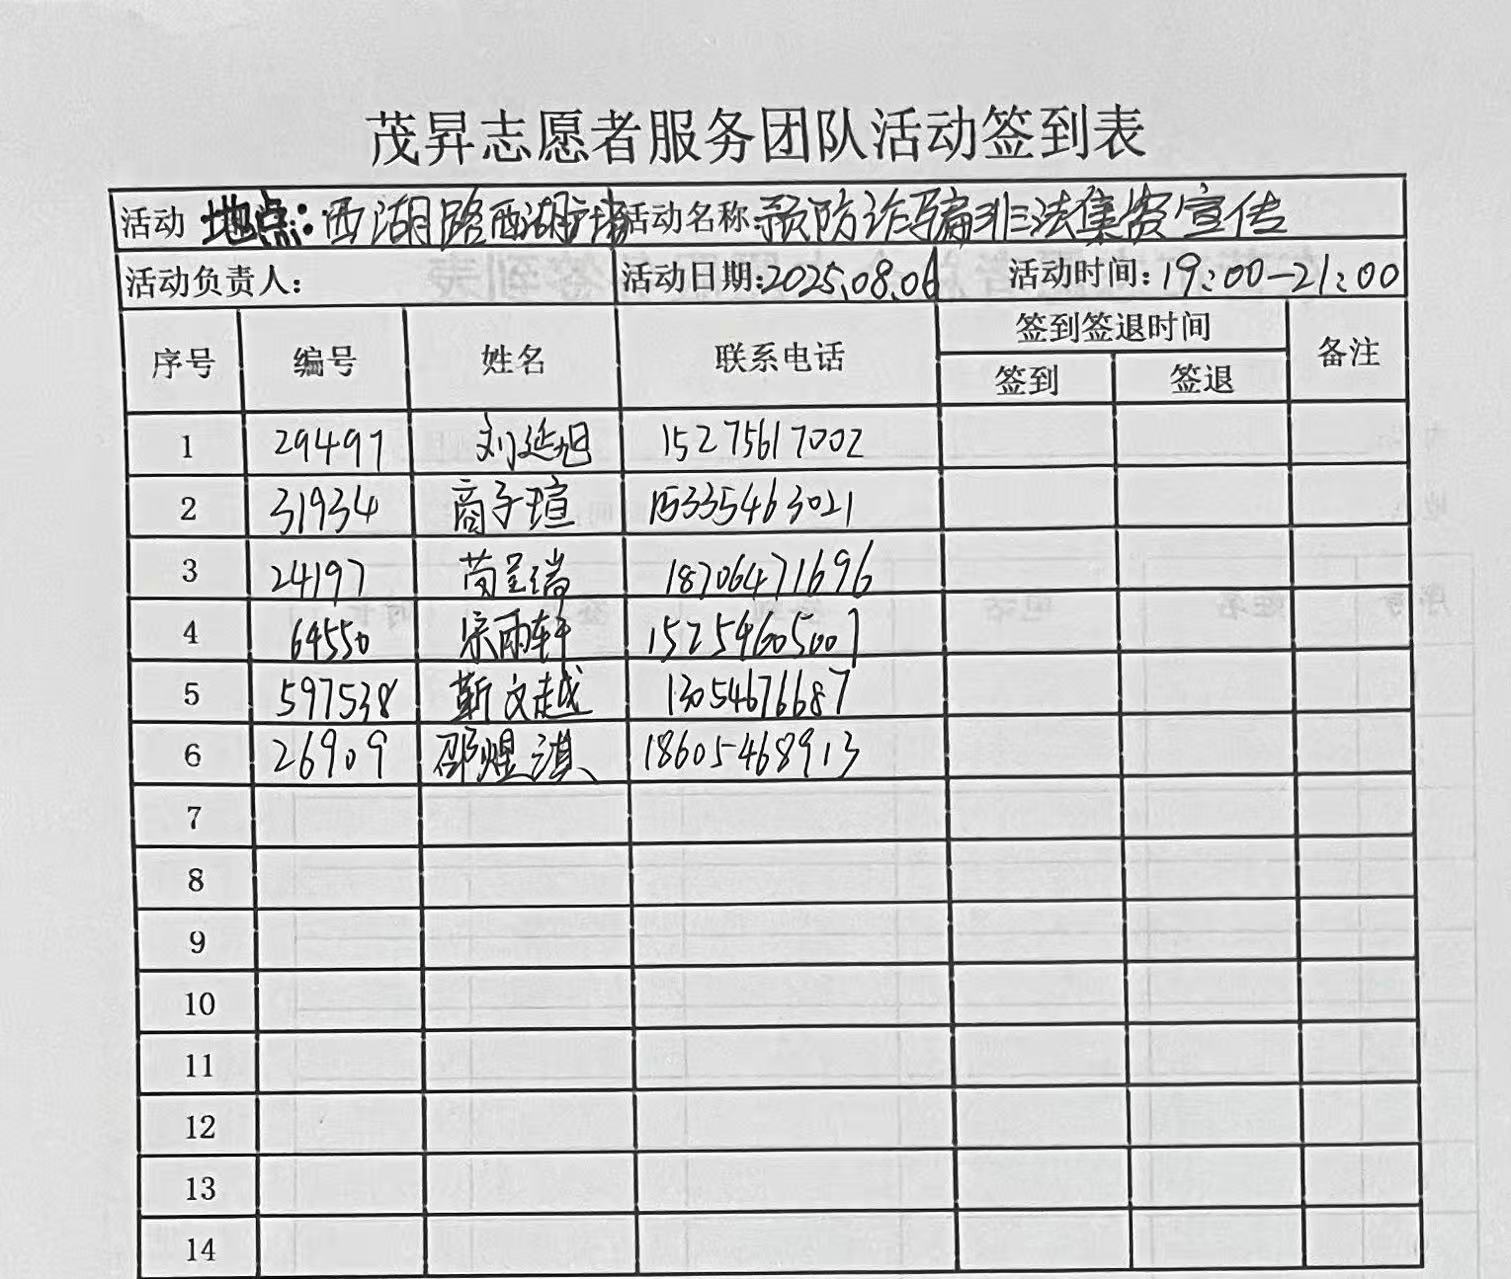 茂昇志愿者服务团队活动签到表
活动 地点:西湖路西湖广场 活动名称:预防诈骗非法集资宣传
活动负责人: 活动日期:2025.08.06 活动时间:19:00—21:00
序号 编号 姓名 联系电话 签到签退时间 备注
签到 签退
1 29497 刘延旭 15275617002
2 31934 商子瑄 15335463021
3 24197 苘呈瑞 18706471696
4 64550 宋雨轩 15254605007
5 597538 靳文越 13054676687
6 26909 邵煜淇 18605468913
7
8
9
10
11
12
13
14